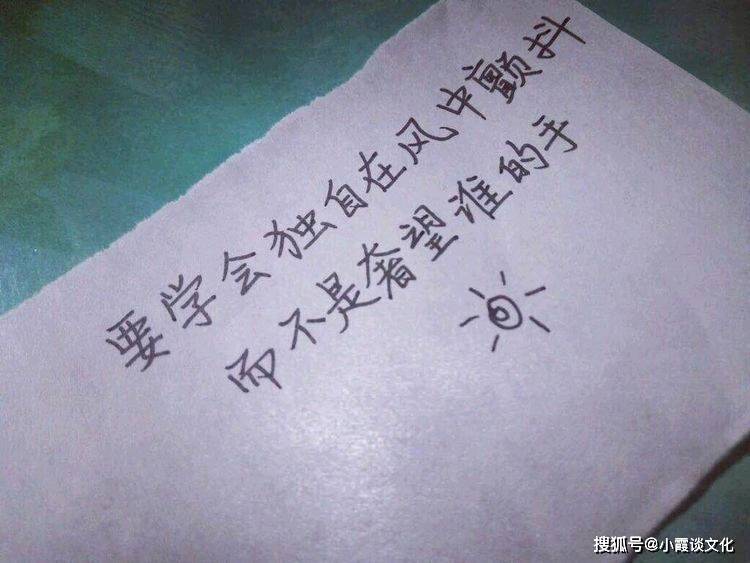 要学会独自在风中颤抖
而不是奢望谁的手
搜狐号@小霞谈文化